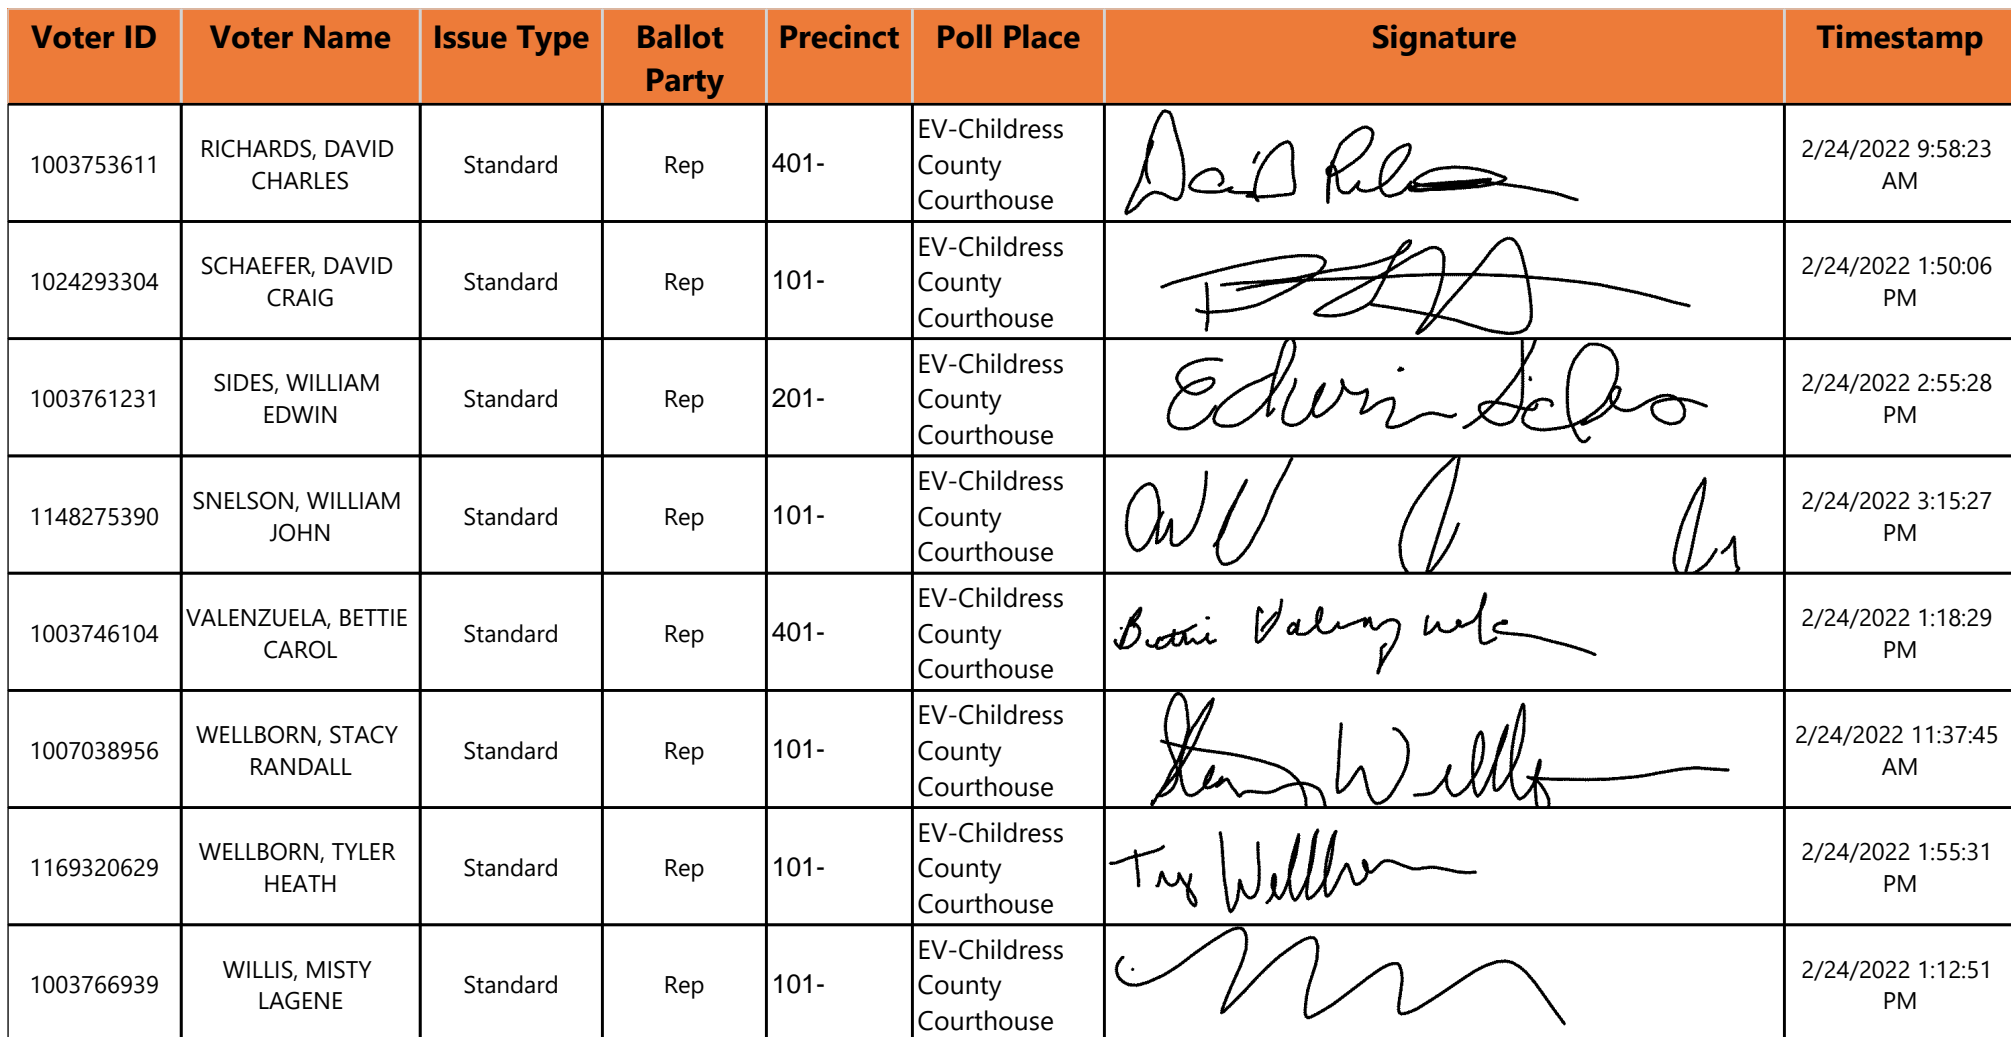 Voter ID Voter Name Issue Type Ballot Party Precinct Poll Place Signature Timestamp
1003753611 RICHARDS, DAVID CHARLES Standard Rep 401- EV-Childress County Courthouse David 2/24/2022 9:58:23 AM
1024293304 SCHAEFER, DAVID CRAIG Standard Rep 101- EV-Childress County Courthouse 2/24/2022 1:50:06 PM
1003761231 SIDES, WILLIAM EDWIN Standard Rep 201- EV-Childress County Courthouse Edwin Sides 2/24/2022 2:55:28 PM
1148275390 SNELSON, WILLIAM JOHN Standard Rep 101- EV-Childress County Courthouse 2/24/2022 3:15:27 PM
1003746104 VALENZUELA, BETTIE CAROL Standard Rep 401- EV-Childress County Courthouse Bettie Valenzuela 2/24/2022 1:18:29 PM
1007038956 WELLBORN, STACY RANDALL Standard Rep 101- EV-Childress County Courthouse Stacy 2/24/2022 11:37:45 AM
1169320629 WELLBORN, TYLER HEATH Standard Rep 101- EV-Childress County Courthouse Wellborn 2/24/2022 1:55:31 PM
1003766939 WILLIS, MISTY LAGENE Standard Rep 101- EV-Childress County Courthouse 2/24/2022 1:12:51 PM